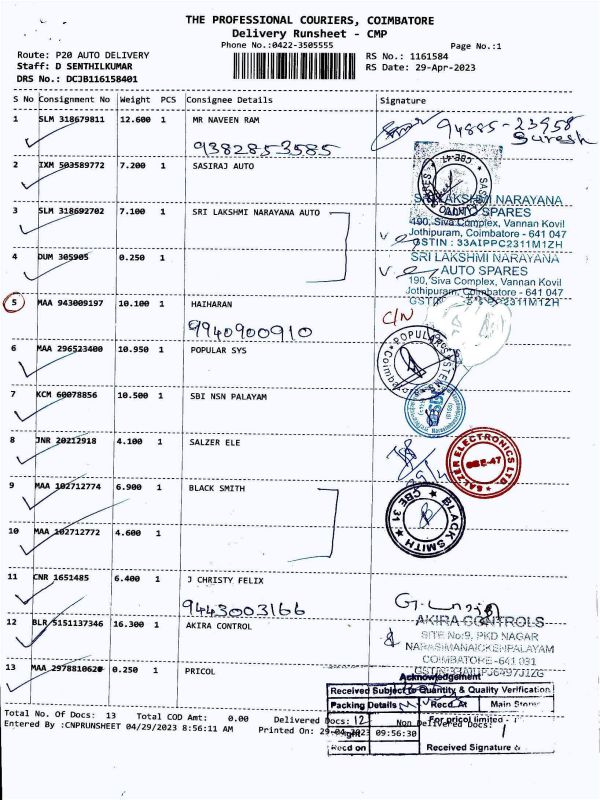 THE PROFESSIONAL COURIERS, COIMBATORE
Delivery Runsheet - CMP
Phone No.:0422-3505555
Page No.:1
Route: P20 AUTO DELIVERY
RS No.: 1161584
Staff: D SENTHILKUMAR
RS Date: 29-Apr-2023
DRS No.: DCJB116158401
S No Consignment No Weight PCS Consignee Details Signature
1 SLM 318679811 12.600 1 MR NAVEEN RAM
94885-23958
Suresh
9382853585
2 IXM 503589772 7.200 1 SASIRAJ AUTO
CBE-47
3 SLM 318692702 7.100 1 SRI LAKSHMI NARAYANA AUTO
SRI LAKSHMI NARAYANA
AUTO SPARES
190, Siva Complex, Vannan Kovil
Jothipuram, Coimbatore - 641 047
GSTIN : 33AIPPC2311M1ZH
4 DUM 305905 0.250 1
SRI LAKSHMI NARAYANA
AUTO SPARES
190, Siva Complex, Vannan Kovil
Jothipuram, Coimbatore - 641 047
5 MAA 943009197 10.100 1 HAIHARAN
C/N
9940900910
6 MAA 296523400 10.950 1 POPULAR SYS
POPULAR SYSTEMS
7 KCM 60078856 10.500 1 SBI NSN PALAYAM
SBI
8 JNR 20212918 4.100 1 SALZER ELE
SALZER ELECTRONICS LTD.
CBE-47
9 MAA 102712774 6.900 1 BLACK SMITH
BLACK SMITH
CBE 31
10 MAA 102712772 4.600 1
11 CNR 1651485 6.400 1 J CHRISTY FELIX
9443003166
12 BLR 5151137346 16.300 1 AKIRA CONTROL
AKIRA CONTROLS
SITE No:9, PKD NAGAR
NARASIMANAICKENPALAYAM
COIMBATORE -641 031
13 MAA 2978810620 0.250 1 PRICOL
Acknowledgement
Received Subject to Quantity & Quality Verification
Packing Details Recd. At Main Stores
Total No. Of Docs: 13 Total COD Amt: 0.00 Delivered Docs: 12 Non Delivered Docs: 1
For pricol limited
Entered By :CNPRUNSHEET 04/29/2023 8:56:11 AM Printed On: 29-04-2023 09:56:30
Recd on Received Signature